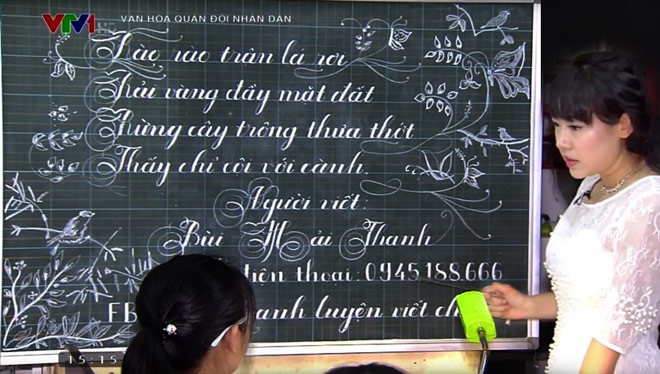 VTV1
VĂN HÓA QUÂN ĐỘI NHÂN DÂN
Lào rào trận lá rơi
Trải vàng đầy mặt đất
Rừng cây trông thưa thớt
Thấy chỉ cội với cành.
Người viết:
Bùi Hoài Thanh
điện thoại: 0945188666
FB anh luyện viết ch
15:15